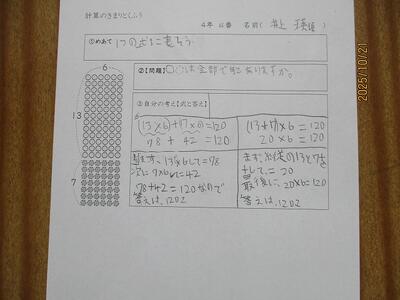 計算のきまりとくふう
4年
名前(
①めあて
1つの式に表そう
6
13
7
②【問題】○○は全部で何こありますか。
③自分の考え【式と答え】
(13×6)+(7×6)=120
78 + 42 =120
まず、13×6をして=78
次に7×6して=42
78+42=120なので
答えは、120こ
(13+7)×6=120
20×6=120
まず、
たして、=20
最後に、20×6=120
答えは、120こ
2025/10/21